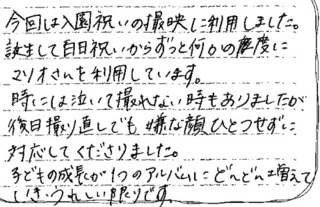 今回は入園祝いの撮映に利用しました。
誕生して百日祝いからずっと何かの度に
マリオさんを利用しています。
時には泣いて撮れない時もありましたが
後日撮り直しでも嫌な顔ひとつせずに
対応してくださりました。
子どもの成長が1つのアルバムにどんどん増えて
いきうれしい限りです。